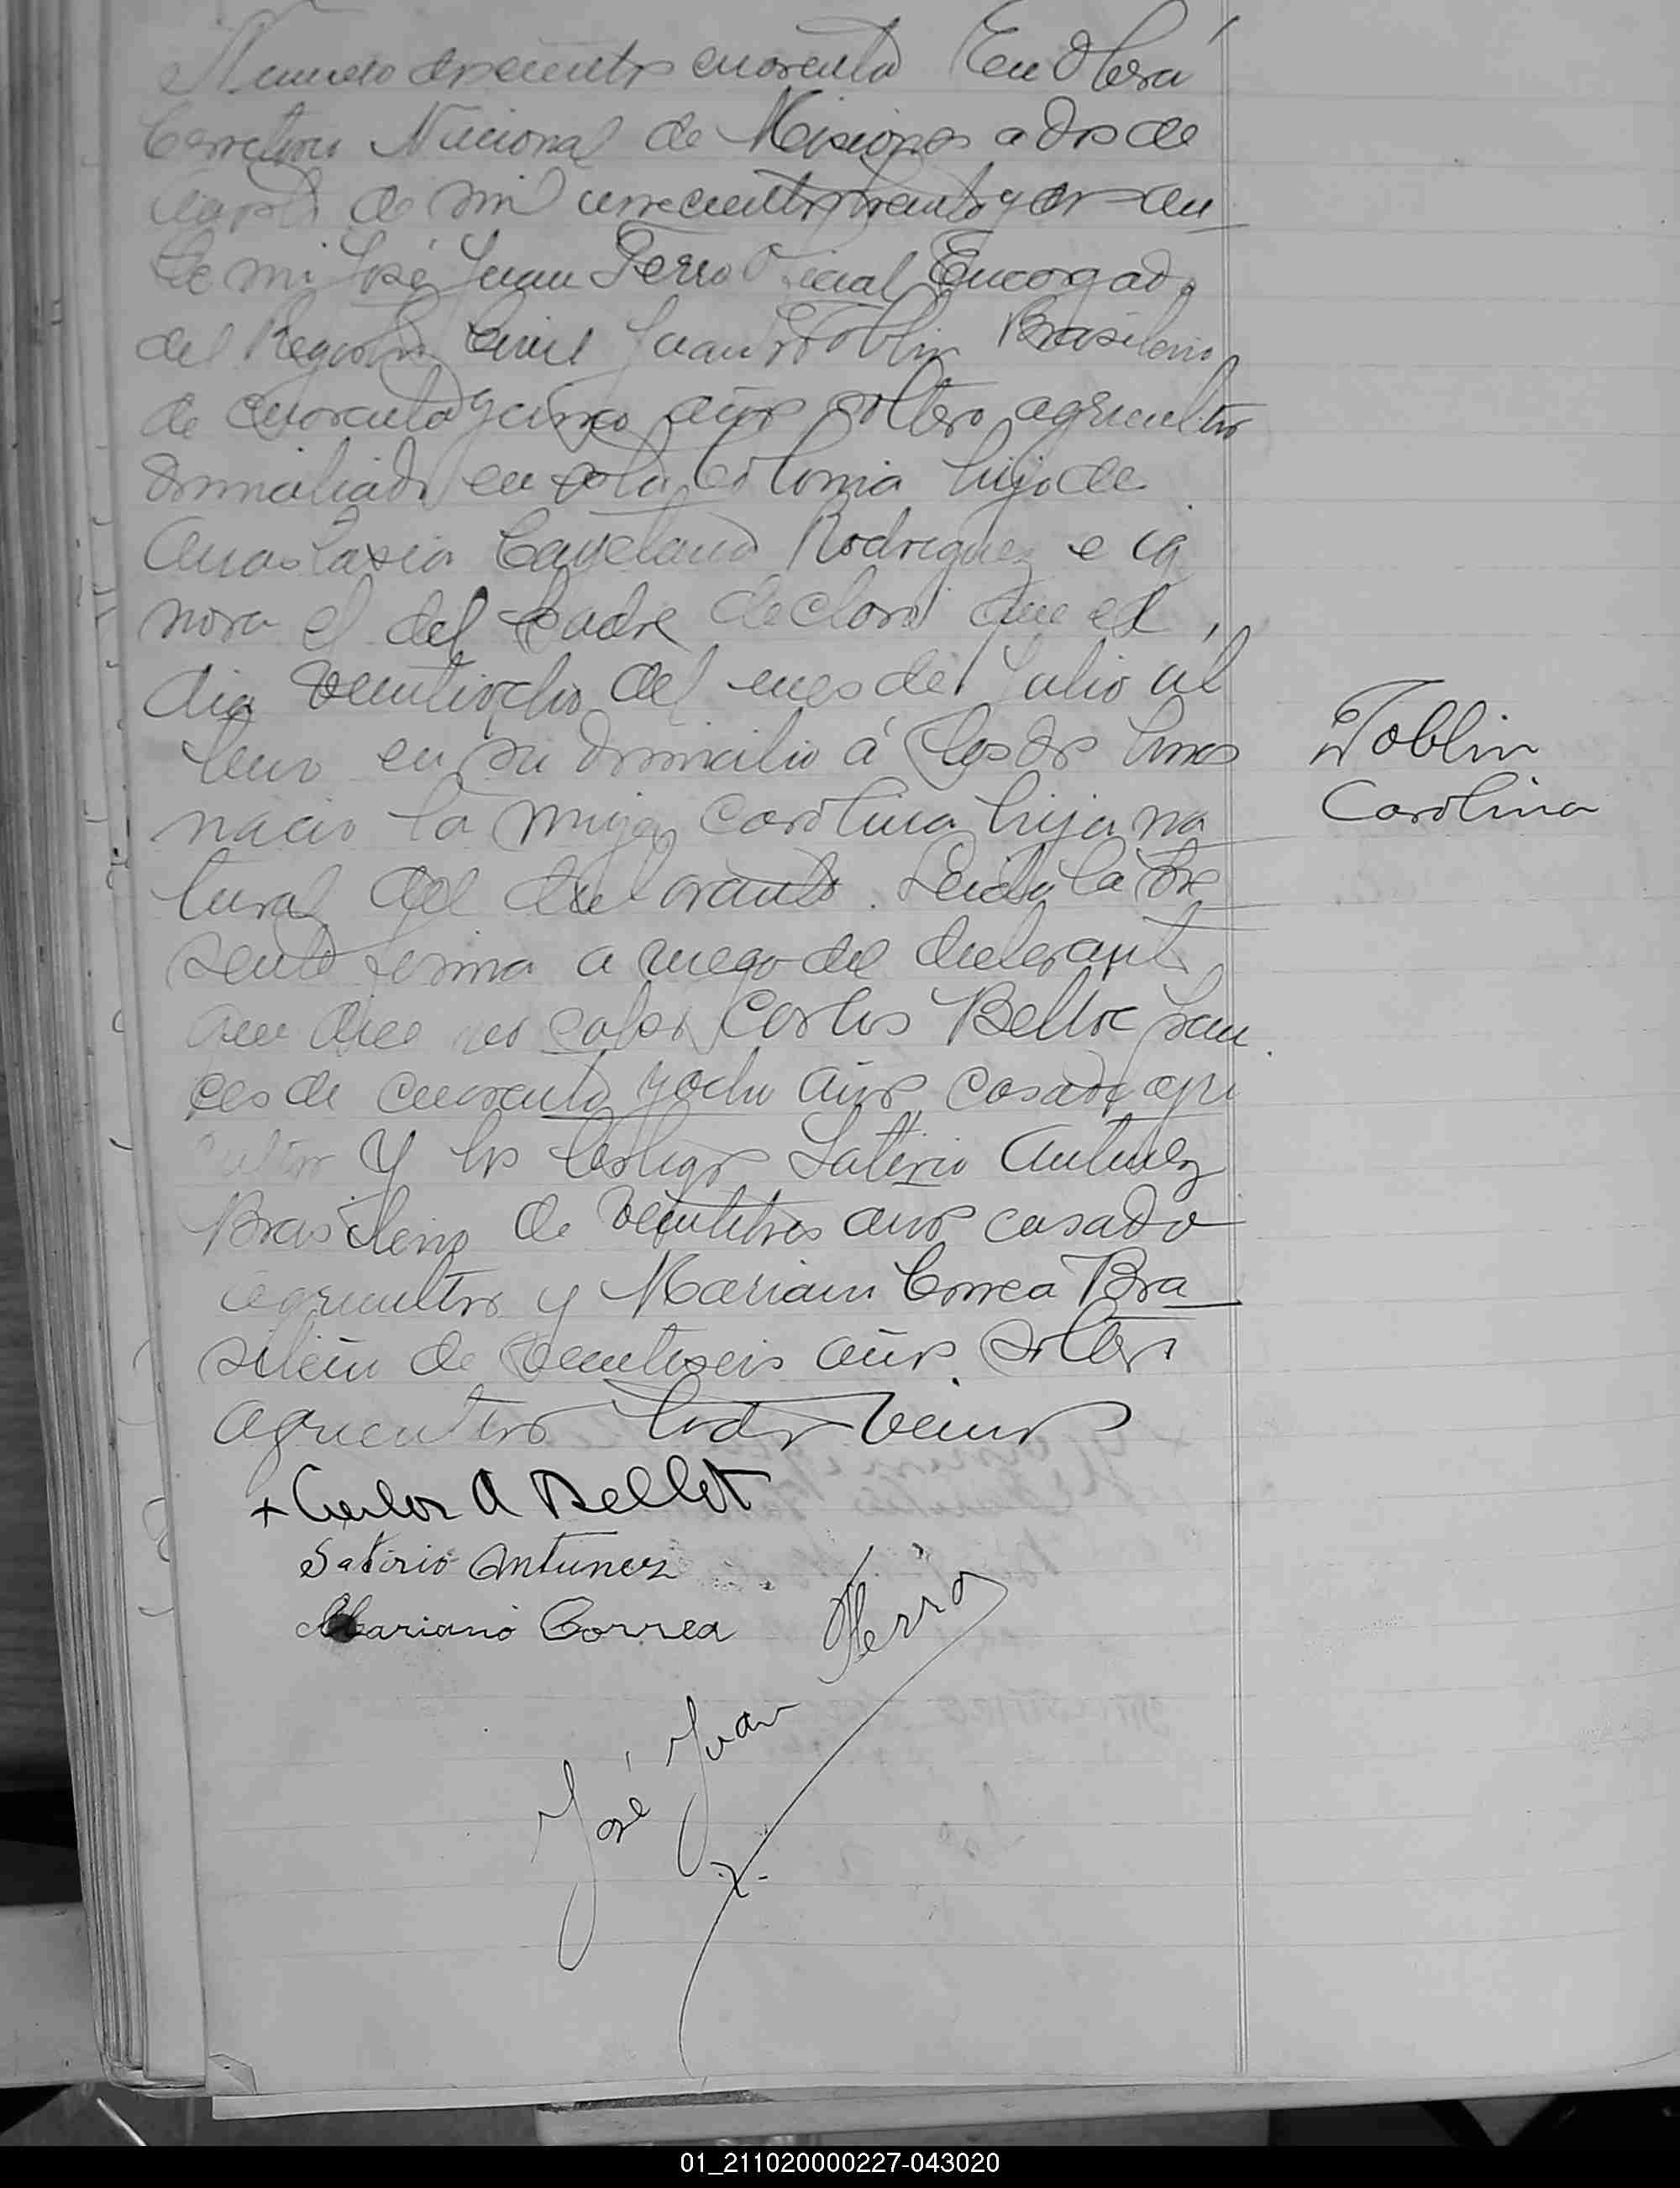 Numero doscientos cuarenta En Oberá
Territorio Nacional de Misiones a dos de
Agosto de mil novecientos treinta y dos an
te mi José Juan Ferro Oficial Encargado
del Registro Civil Juan Toblin Brasilero
de cuarenta y cinco años soltero agricultor
domiciliado en esta Colonia hijo de
Anastasia Cayetana Rodriguez e ig
nora el del padre declaró que el
dia veintiocho del mes de Julio al
timo en su domicilio á las dos horas
nacio la Carolina hija na
tural del declarante. Leida la pre
sente firma a ruego del declarante
que dice no saber Carlos Belloc fran
ces de cuarenta y ocho años casado agri
cultor y los testigos Satirio Antunez
Brasilero de veintitres años casado
agricultor y Mariano Correa Bra
sileño de veintiseis años soltero
agricultor todos vecinos
Toblin
Carolina
+ Carlos A Bellot
Satirio Antunez
Mariano Correa
José Juan Ferro
01_211020000227-043020